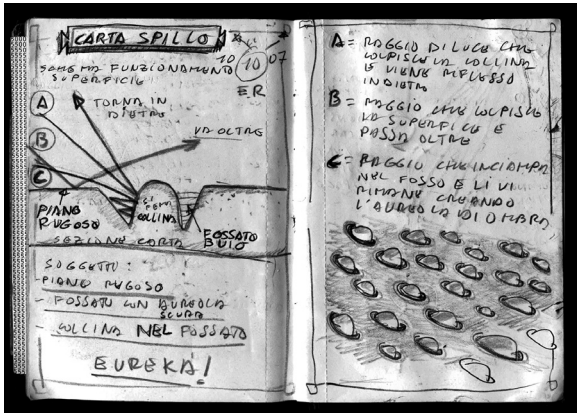 CARTA SPILLO
10 10 07
SCHEMA FUNZIONAMENTO
SUPERFICIE
ER
A
TORNA IN
DIETRO
B
VA OLTRE
C
PIANO
RUGOSO
COLLINA
FOSSATO
BUIO
SEZIONE CARTA
SOGGETTO:
- PIANO RUGOSO
- FOSSATO CON AUREOLA
SCURA
- COLLINA NEL FOSSATO
EUREKA!
A = RAGGIO DI LUCE CHE
COLPISCE LA COLLINA
E VIENE RIFLESSO
INDIETRO
B = RAGGIO CHE COLPISCE
LA SUPERFICE E
PASSA OLTRE
C = RAGGIO CHE INCIAMPA
NEL FOSSO E LI VI
RIMANE CREANDO
L'AUREOLA DI OMBRA